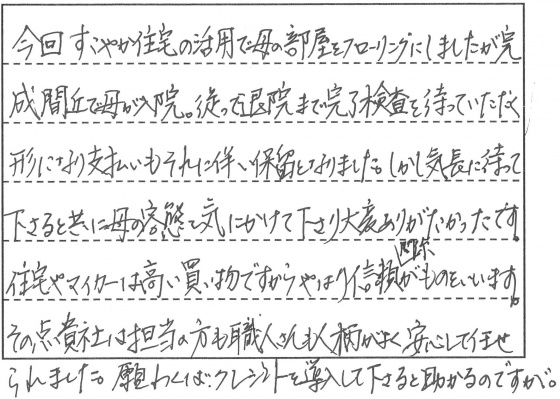 今回すこやか住宅の活用で母の部屋をフローリングにしましたが完
成間近で母が入院。従って退院まで完了検査を待っていただく
形になり支払いもそれに伴い保留となりました。しかし気長に待って
下さると共に母の容態も気にかけて下さり大変ありがたかったです。
住宅やマイカーは高い買い物ですからやはり信頼関係がものをいいます。
その点貴社は担当の方も職人さんも人柄がよく安心して任せ
られました。願わくば、クレジットを導入して下さると助かるのですが。